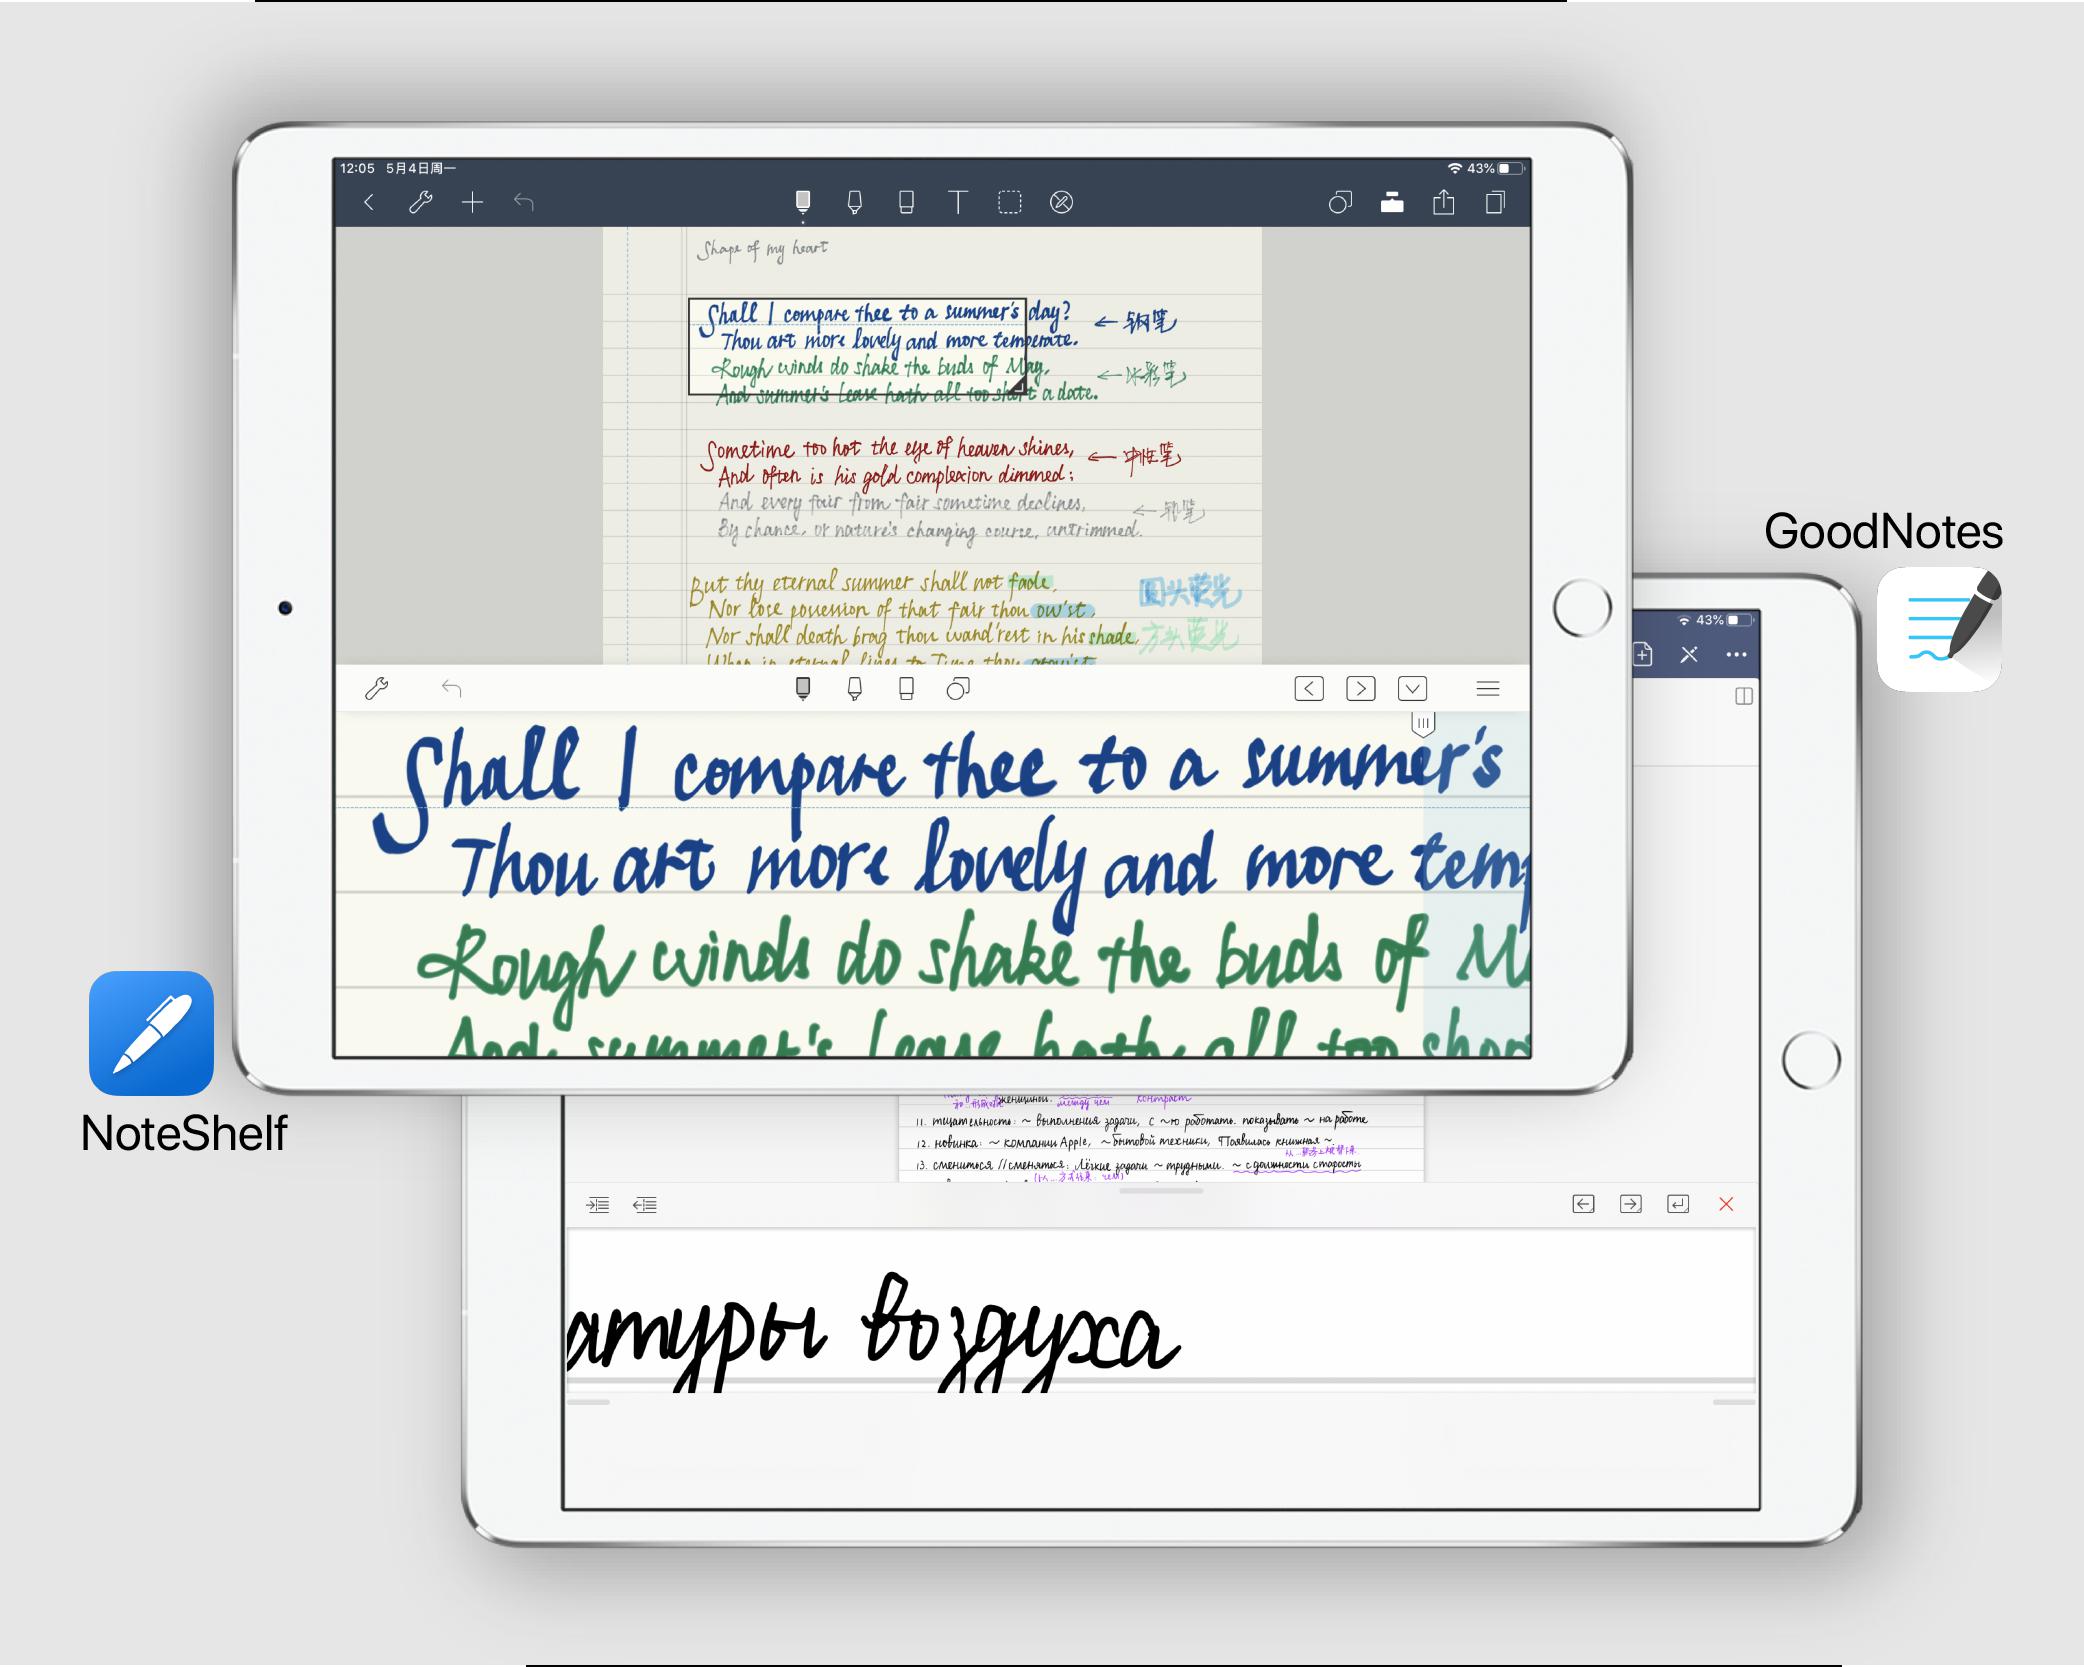 12:05 5月4日周一
43%
Shape of my heart
Shall I compare thee to a summer's day?
← 钢笔
Thou art more lovely and more temperate.
Rough winds do shake the buds of May,
← 水彩笔
And summer's lease hath all too short a date.
Sometime too hot the eye of heaven shines,
← 中性笔
And often is his gold complexion dimmed;
And every fair from fair sometime declines,
← 铅笔
By chance, or nature's changing course, untrimmed.
But thy eternal summer shall not fade,
圆头荧光
Nor lose possession of that fair thou ow'st,
Nor shall death brag thou wand'rest in his shade,
方头荧光
When in eternal lines to Time thou grow'st
Shall I compare thee to a summer's
Thou art more lovely and more temp
Rough winds do shake the buds of Ma
And summer's lease hath all too shor
NoteShelf
GoodNotes
43%
женщиной. между чем контраст
11. тщательность: ~ выполнения задачи, с ~ю работать. показывать ~ на работе
12. новинка: ~ компании Apple, ~ бытовой техники, Появилась книжная ~
13. смениться // сменяться: Лёгкие задачи ~ трудными. ~ с должности старосты
атуры воздуха